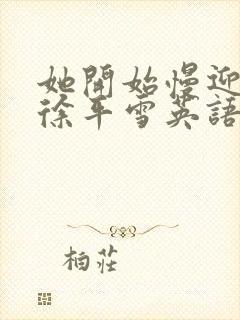 她開始慢迎
徐平雪英語
柏莊